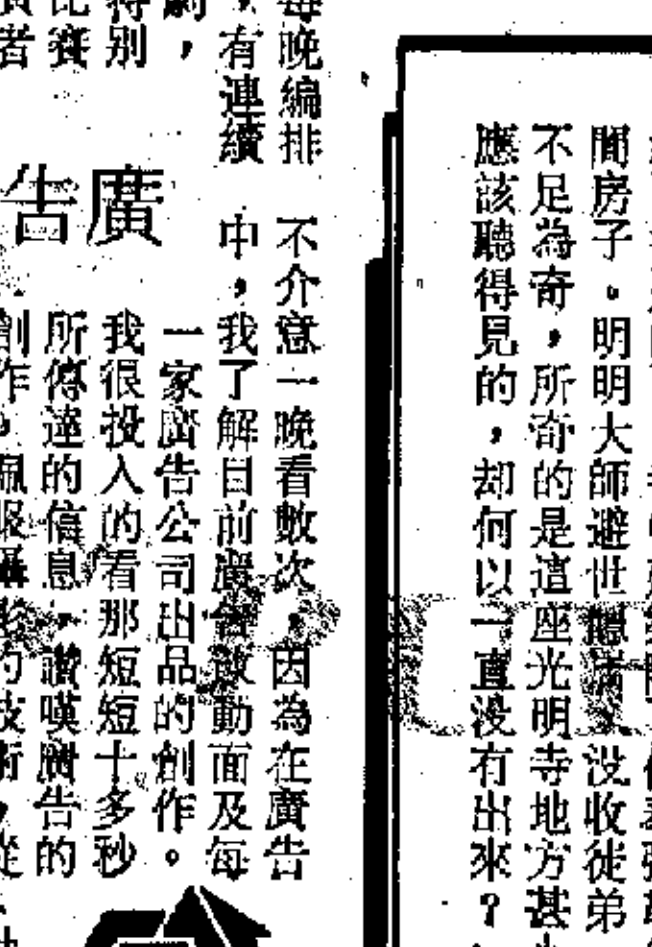 間房子。明明大師避世
没收徒弟
不足為奇,所奇的是這座光明寺地方甚
應該聽得見的,却何以一直没有出來?
每晚編排
,有連續
劇,
特别
比賽
者
廣告
不介意一晚看數次,因為在廣告
中,我了解目前廣告
動面及每
一家廣告公司出品的創作。
我很投入的看那短短十多秒
所傳達的信息,讚嘆廣告的
創作,佩服攝影的技術,從